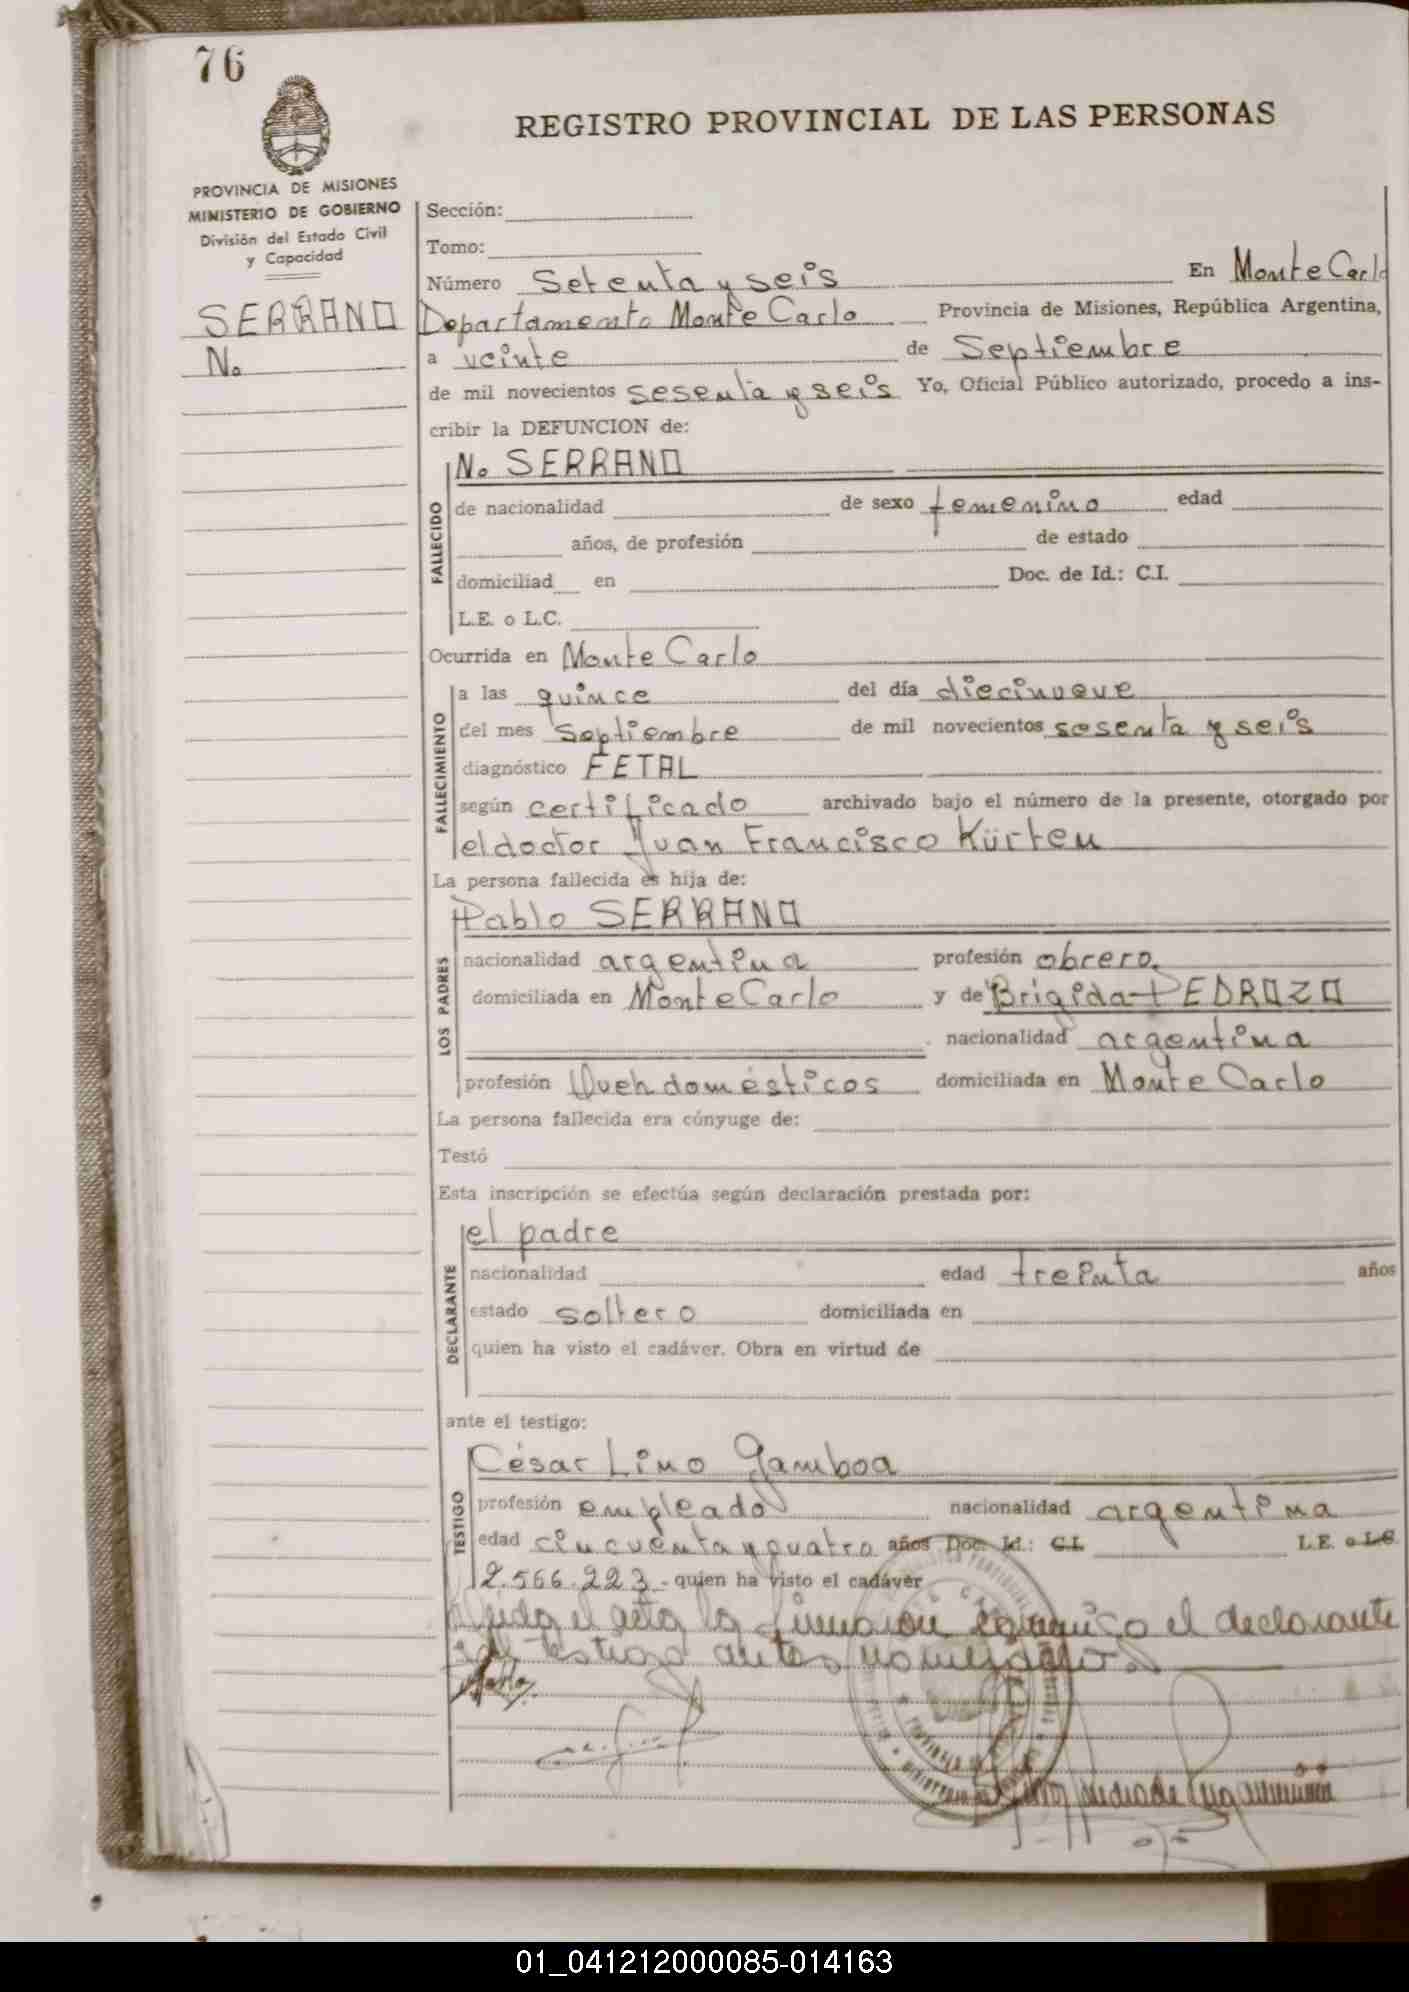 76
REGISTRO PROVINCIAL DE LAS PERSONAS
PROVINCIA DE MISIONES
MINISTERIO DE GOBIERNO
División del Estado Civil
y Capacidad
SERRANO
N.
Sección:
Tomo:
Número Setenta y seis En Monte Carlo
Departamento Monte Carlo Provincia de Misiones, República Argentina,
a veinte de Septiembre
de mil novecientos sesenta y seis Yo, Oficial Público autorizado, procedo a ins-
cribir la DEFUNCION de:
N. SERRANO
FALLECIDO
de nacionalidad de sexo femenino edad
años, de profesión de estado
domiciliad en Doc. de Id.: C.I.
L.E. o L.C.
Ocurrida en Monte Carlo
FALLECIMIENTO
a las quince del día diecinueve
del mes Septiembre de mil novecientos sesenta y seis
diagnóstico FETAL
según certificado archivado bajo el número de la presente, otorgado por
el doctor Juan Francisco Kürten
La persona fallecida es hija de:
Pablo SERRANO
LOS PADRES
nacionalidad argentina profesión obrero.
domiciliada en Monte Carlo y de Brigida PEDROZO
nacionalidad argentina
profesión Queh domésticos domiciliada en Monte Carlo
La persona fallecida era cónyuge de:
Testó
Esta inscripción se efectúa según declaración prestada por:
el padre
DECLARANTE
nacionalidad edad treinta años
estado soltero domiciliada en
quien ha visto el cadáver. Obra en virtud de
ante el testigo:
César Lino Gamboa
TESTIGO
profesión empleado nacionalidad argentina
edad cincuenta y cuatro años Doc. Id.: C.I. L.E. o L.C.
2.566.223 - quien ha visto el cadáver
el acta la firmaron conmigo el declarante
testigo antes nombrados
01_041212000085-014163